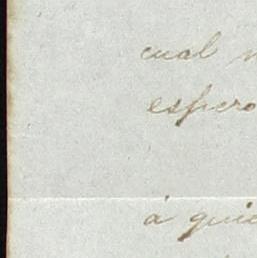 cual
espero
á quie